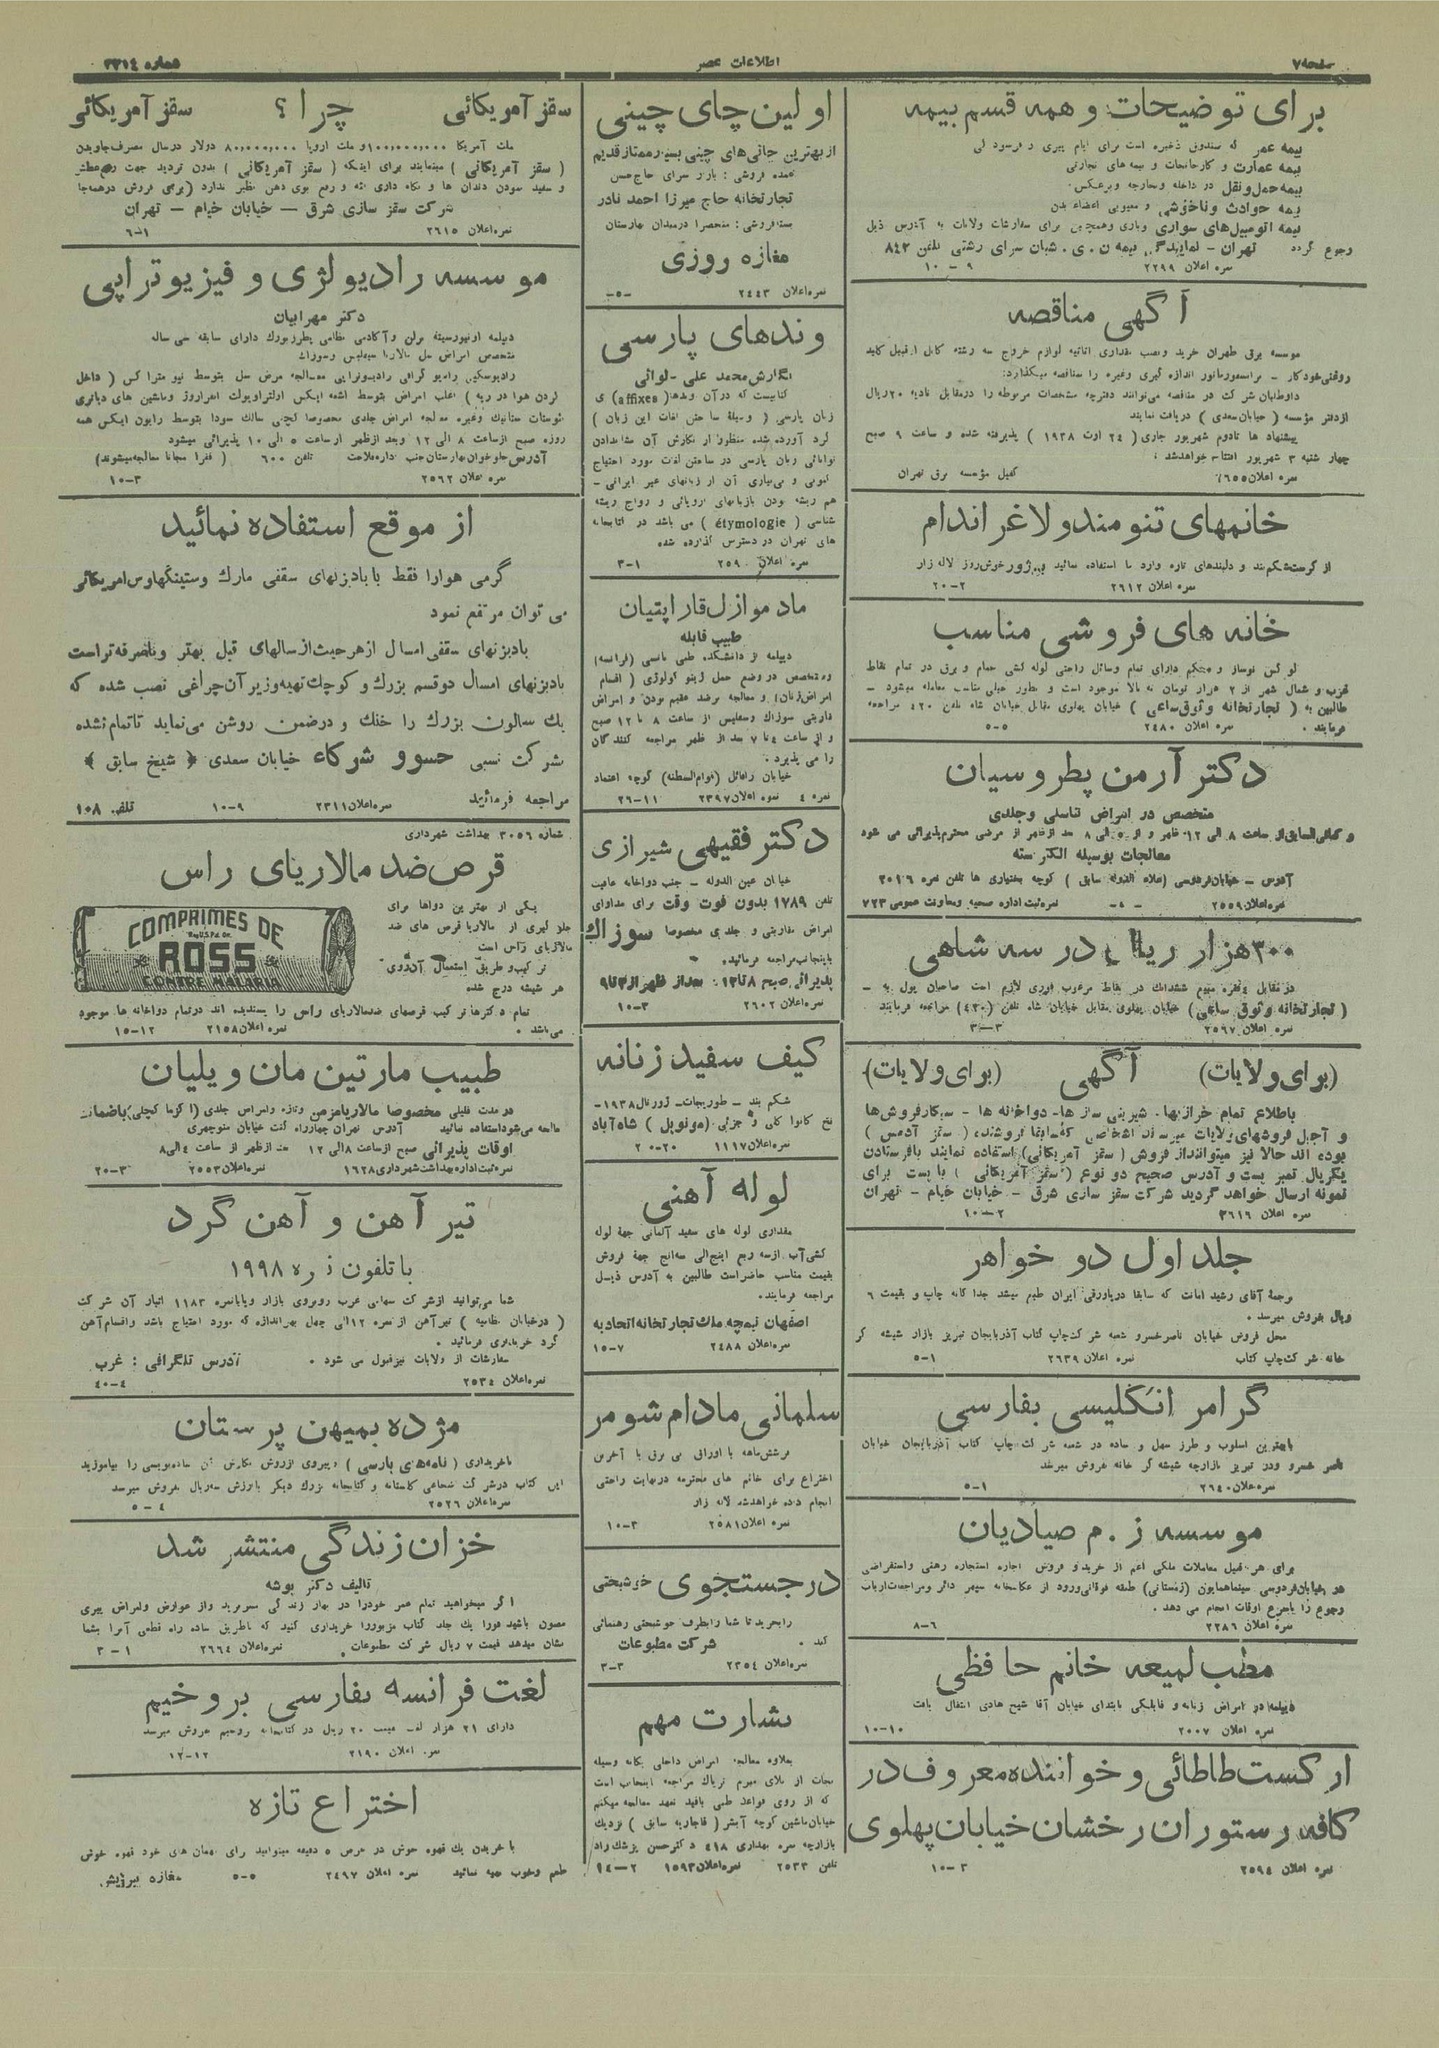 صفحه ۷
اطلاعات عصر
شماره ۳۳۱٤
برای توضیحات و همه قسم بیمه
بیمه عمر که صندوق ذخیره است برای ایام پیری و فرسودگی
بیمه عمارت و کارخانجات و بیمه های تجارتی
بیمه حمل و نقل در داخله و خارجه وبرعکس
بیمه حوادث و ناخوشی و معیوبی اعضاء بدن
بیمه اتومبیل‌های سواری وباری وهمچنین برای سفارشات ولایات به آدرس ذیل
رجوع گردد تهران - نمایندگی بیمه ن . ی . شبان سرای رشتی تلفن ۸٤۲
نمره اعلان ۲۲۹۹ ۹ - ۱۰
آگهی مناقصه
موسسه برق طهران خرید ونصب مقداری اثاثیه لوازم خروج سه رشته کابل از قبیل کلید
روغنی خودکار - ترانسفورماتور اندازه گیری وغیره را بمناقصه میگذارد:
داوطلبان شرکت در مناقصه می‌توانند دفترچه مشخصات مربوطه را در مقابل تادیه ۲۰ ریال
از دفتر مؤسسه ( خیابان سعدی ) دریافت نمایند
پیشنهاد ها تا دوم شهریور جاری ( ۲٤ اوت ۱۹۳۸ ) پذیرفته شده و ساعت ۹ صبح
چهار شنبه ۳ شهریور افتتاح خواهد شد .
کفیل مؤسسه برق تهران
خانمهای تنومند و لاغر اندام
از کرست شکم بند و دلبندهای تازه وارد ما استفاده نمائید خوش روز لاله زار
نمره اعلان ۲٦۱۲ ۲-۲۰
خانه های فروشی مناسب
نو کن نوساز و محکم دارای تمام وسائل راحتی لوله کشی حمام و برق در تمام نقاط
غرب و شمال شهر از ۲ هزار تومان به بالا موجود است و بطور خیلی مناسب معامله میشود -
طالبین به ( تجارتخانه وثوق ساعی ) خیابان پهلوی مقابل خیابان شاه تلفن ٤۲۰ مراجعه
فرمایند . نمره اعلان ۲٤۸۰ ۵-۵
دکتر آرمن پطروسیان
متخصص در امراض تناسلی وجلدی
و کمافی‌السابق از ساعت ۸ الی ۱۲ ظهر و از ۵ الی ۸ بعد از ظهر از مرضی محترم پذیرائی می شود
معالجات بوسیله الکتریسته
آدرس - خیابان فردوسی (علاء الدوله سابق ) کوچه بختیاری ها تلفن نمره ۳۰۱٦
نمره اعلان ۲۵۵۹ نمره ثبت اداره صحیه ومعاونت عمومی ۷۲۳
۳۰۰ هزار ریال در سه شاهی
( تجارتخانه وثوق ساعی ) خیابان پهلوی مقابل خیابان شاه تلفن (٤۲۰) مراجعه فرمایند
نمره اعلان ۲۵۹۷ ۳-۳
(برای ولایات) آگهی (برای ولایات)
باطلاع تمام خرازیها - شیرینی ساز ها - دواخانه ها - سیگار فروش‌ها
و آجیل فروشهای ولایات میرساند اشخاصی که سابقا فروشنده ( سقز آدمس )
بوده اند حالا نیز میتوانند از فروش ( سقز آمریکائی ) استفاده نمایند با فرستادن
یکریال تمبر پست و آدرس صحیح دو نوع ( سقز آمریکائی ) با پست برای
نمونه ارسال خواهد گردید شرکت سقز سازی شرق - خیابان خیام - تهران
نمره اعلان ۲٦۱٦ ۲-۱۰
جلد اول دو خواهر
ترجمهٔ آقای رشید امانت که سابقا در پاورقی ایران طبع میشد جداگانه چاپ و بقیمت ٦
ریال بفروش میرسد .
محل فروش خیابان ناصر خسرو شعبه شرکت چاپ کتاب آذربایجان تبریز بازار شیشه گر
خانه شرکت چاپ کتاب نمره اعلان ۲٦۳۹ ۱-۵
گرامر انگلیسی بفارسی
با بهترین اسلوب و طرز سهل و ساده در شعبه شرکت چاپ کتاب آذربایجان خیابان
ناصر خسرو ودر تبریز بازارچه شیشه گر خانه بفروش میرسد
نمره اعلان ۲٦٤۰ ۱-۵
موسسه ز . م صیادیان
برای هر قبیل معاملات ملکی اعم از خرید و فروش اجاره استجاره رهنی واستقراضی
نمره اعلان ۲۲۸٦ ٦-۸
مطب لمیعه خانم حافظی
دیپلمه در امراض زنانه و قابلگی بابتدای خیابان آقا شیخ هادی انتقال یافت
نمره اعلان ۲۰۰۷ ۱۰-۱۰
ارکست طاطائی و خواننده معروف در
کافه رستوران رخشان خیابان پهلوی
نمره اعلان ۲۵۹٤ ۳-۱۰
اولین چای چینی
از بهترین چائی های چینی بسیار ممتاز قدیم
عمده فروشی : بازار سرای حاج حسن
تجارتخانه حاج میرزا احمد نادر
بسته فروشی : منحصرا در میدان بهارستان
مغازه روزی
نمره اعلان ۲٤٤۳ -۵-
وندهای پارسی
نگارش محمد علی لوائی
کتابیست که در آن وندها (affixes) ی
زبان پارسی ( وسیلهٔ ساختن لغات این زبان )
گرد آورده شده منظور از نگارش آن نشاندادن
توانائی زبان پارسی در ساختن لغت مورد احتیاج
کنونی و بی‌نیازی آن از زبانهای غیر ایرانی -
هم ریشه بودن با زبانهای اروپائی و رواج ریشه
شناسی ( étymologie ) می باشد در کتابخانه
های تهران در دسترس گذارده شده
نمره اعلان ۲۵۹۰ ۱-۳
مادموازل قاراپتیان
طبیب قابله
دیپلمه از دانشکده طبی نانسی (فرانسه)
ومتخصص در وضع حمل ژینو کولوژی ( اقسام
امراض زنان ) و معالجه مرض عقیم بودن و امراض
مقاربتی سوزاک وسفلیس از ساعت ۸ تا ۱۲ صبح
و از ساعت ٤ تا ۷ بعد از ظهر مراجعه کنندگان
را می پذیرد .
خیابان رافائل (قوام السلطنه) کوچه اعتماد
نمره ٤ نمره اعلان ۲۳۹۷ ۱۱-۲٦
دکتر فقیهی شیرازی
خیابان عین الدوله - جنب دواخانه عافیت
تلفن ۱۷۸۹ بدون فوت وقت برای مداوای
امراض مقاربتی و جلدی مخصوصا سوزاک
باینجانب مراجعه فرمائید .
پذیرائی صبح ۸ تا ۱۲ بعد از ظهر از ۳ تا ۹
نمره اعلان ۲٦۰۲ ۳-۱۰
کیف سفید زنانه
شکم بند - طوریجات - ژورنال ۱۹۳۸-
نخ کانوا کلی و جزئی (مونوپل) شاه آباد
نمره اعلان ۱۱۱۷ ۲۰-۲۰
لوله آهنی
مقداری لوله های سفید آلمانی جهة لوله
کشی آب از سه ربع اینچ الی سه اینچ جهة فروش
بقیمت مناسب حاضر است طالبین به آدرس ذیل
مراجعه فرمایند .
اصفهان نیمچه ملک تجارتخانه اتحادیه
نمره اعلان ۲٤۸۸ ۷-۱۵
سلمانی مادام شومر
فر ششماهه با اوراقی بی برق با آخرین
اختراع برای خانم های محترمه در نهایت راحتی
انجام داده خواهد شد لاله زار
نمره اعلان ۲۵۸۱ ۳-۱۰
در جستجوی خوشبختی
را بخرید تا شما را بطرف خوشبختی رهنمائی
کند . شرکت مطبوعات
نمره اعلان ۲۳۵٤ ۳-۳
بشارت مهم
بعلاوه معالجه امراض داخلی یگانه وسیله
نجات از بلای مبرم تریاک مراجعه اینجانب است
که از روی قواعد طبی باقید تعهد معالجه میکنم
خیابان ماشین کوچه آبشر ( قاجاریه سابق ) نزدیک
بازارچه نمره بهداری ٤۱۸ دکتر حسن پزشک راد
تلفن ۲۵۳۳ نمره اعلان ۱۵۹۳ ۲-۱٤
سقز آمریکائی چرا ؟ سقز آمریکائی
ملت آمریکا ۱۰۰,۰۰۰,۰۰۰ و ملت اروپا ۸۰,۰۰۰,۰۰۰ دولار در سال مصرف جاویدن
( سقز آمریکائی ) مینمایند برای اینکه ( سقز آمریکائی ) بدون تردید جهت رفع عطش
و سفید نمودن دندان ها و نگاه داری لثه و رفع بوی دهن نظیر ندارد ( برای فروش در همه جا
شرکت سقز سازی شرق - خیابان خیام - تهران
نمره اعلان ۲٦۱۵ ۱-٦
موسسه رادیولژی و فیزیوتراپی
دکتر مهرابیان
دیپلمه اونیورسیته برلن و آکادمی نظامی پطرزبورگ دارای سابقه سی ساله
متخصص امراض سل مالاریا سیفلیس وسوزاک
رادیوسکپی رادیو گرافی رادیوتراپی معالجه مرض سل بتوسط نیو متراکس ( داخل
کردن هوا در ریه ) اغلب امراض بتوسط اشعه ایکس اولتراویولت انفراروژ وماشین های دیاترمی
روزه صبح از ساعت ۸ الی ۱۲ وبعد از ظهر از ساعت ۵ الی ۱۰ پذیرائی میشود
آدرس جلوخوان بهارستان جنب اداره فلاحت تلفن ٦۰۰ ( فقرا مجانا معالجه میشوند )
نمره اعلان ۲۵٦۲ ۳-۱۰
از موقع استفاده نمائید
گرمی هوا را فقط با بادبزنهای سقفی مارک وستینگهاوس امریکائی
می توان مرتفع نمود
بادبزنهای سقفی امسال از هر حیث از سالهای قبل بهتر و باصرفه تر است
بادبزنهای امسال دو قسم بزرگ و کوچک تهیه و زیر آن چراغی نصب شده که
یک سالون بزرگ را خنک و در ضمن روشن می‌نماید تا تمام نشده
بشرکت نسبی حسو و شرکاء خیابان سعدی ( شیخ سابق )
مراجعه فرمائید نمره اعلان ۲۳۱۱ ۹-۱۰ تلفن ۱۰۸
شماره ۳۰۵٦ بهداشت شهرداری
قرص ضد مالاریای راس
یکی از بهترین دواها برای
جلوگیری از مالاریا قرص های ضد
مالاریای راس است
ترکیب و طریق استعمال آن روی
هر شیشه درج شده
COMPRIMES DE
ROSS
CONTRE MALARIA
تمام دکترها ترکیب قرصهای ضد مالاریای راس را پسندیده اند در تمام دواخانه ها موجود
می‌باشد . نمره اعلان ۲۱۵۸ ۱۲-۱۵
طبیب مارتین مان ویلیان
در مدت قلیلی مخصوصا مالاریا مزمن وتازه وامراض جلدی ( اگزما کچلی ) باضمانت
معالجه می‌شود استفاده نمائید آدرس تهران چهارراه کنت خیابان منوچهری
اوقات پذیرائی صبح از ساعت ۸ الی ۱۲ بعد از ظهر از ساعت ٤ الی ۸
نمره ثبت اداره بهداشت شهرداری ۱٦۲۸ نمره اعلان ۲۵۵۳ ۳-۲۰
تیر آهن و آهن گرد
با تلفون نمره ۱۹۹۸
شما می‌توانید از شرکت سهامی غرب روبروی بازار و یا با نمره ۱۱۸۳ انبار آن شرکت
( در خیابان نظامیه ) تیر آهن از نمره ۱۲ الی چهل بهر اندازه که مورد احتیاج باشد واقسام آهن
گرد خریداری فرمائید .
سفارشات از ولایات نیز قبول می شود . آدرس تلگرافی : غرب
نمره اعلان ۲۵۳٤ ٤-٤۰
مژده بمیهن پرستان
با خریداری ( نامه‌های پارسی ) و پیروی از روش نگارش آن ساده نویسی را بیاموزید
این کتاب در شرکت شعاعی گلستانه و کتابخانه بزرگ دیگر با ارزش سه ریال بفروش میرسد
نمره اعلان ۲۵۲٦ ٤-۵
خزان زندگی منتشر شد
تالیف دکتر بوشه
اگر میخواهید تمام عمر خود را در بهار زندگی بسر برید و از عوارض وامراض پیری
مصون باشید فورا یک جلد کتاب مزبور را خریداری کنید که با طریق ساده راه قطعی آنرا بشما
نشان میدهد قیمت ۷ ریال شرکت مطبوعات . نمره اعلان ۲٦٦٤ ۱-۳
لغت فرانسه بفارسی بروخیم
دارای ۲۱ هزار لغت قیمت ۲۰ ریال در کتابخانه بروخیم بفروش میرسد
نمره اعلان ۲۱۹۰ ۱۲-۱۲
اختراع تازه
با خریدن یک قهوه جوش در عرض ۵ دقیقه میتوانید برای مهمان های خود قهوه خوش
طعم وخوب تهیه نمائید نمره اعلان ۲٤۹۷ ۵-۵ مغازه پیرایش